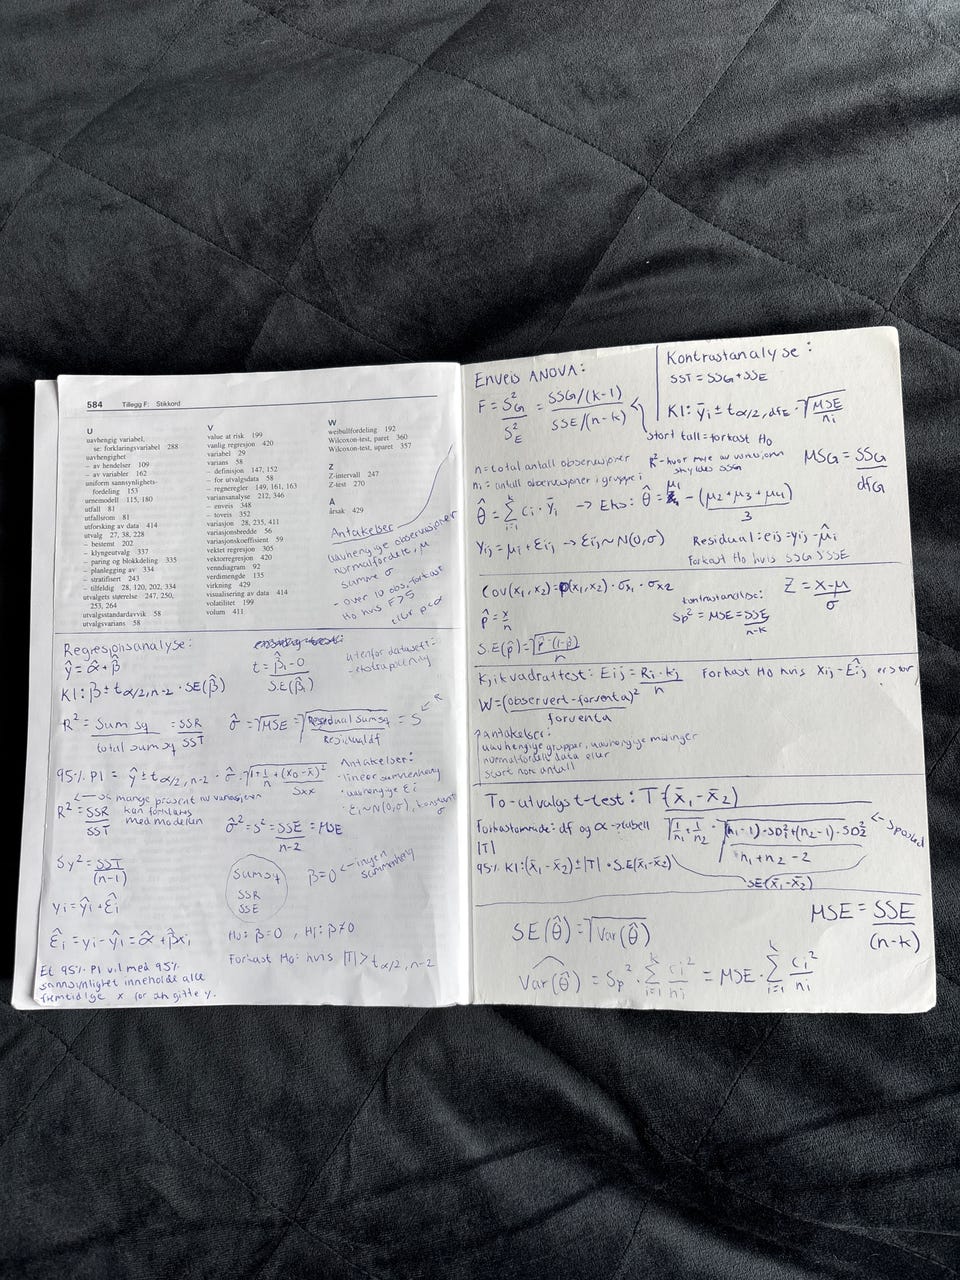 584 Tillegg F: Stikkord
U
uavhengig variabel,
se: forklaringsvariabel 288
uavhengighet
– av hendelser 109
– av variabler 162
uniform sannsynlighets-
fordeling 153
urnemodell 115, 180
utfall 81
utfallsrom 81
utforsking av data 414
utvalg 27, 38, 228
– bestemt 202
– klyngeutvalg 337
– paring og blokkdeling 335
– planlegging av 334
– stratifisert 243
– tilfeldig 28, 120, 202, 334
utvalgets størrelse 247, 250,
253, 264
utvalgsstandardavvik 58
utvalgsvarians 58
V
value at risk 199
vanlig regresjon 420
variabel 29
varians 58
– definisjon 147, 152
– for utvalgsdata 58
– regneregler 149, 161, 163
variansanalyse 212, 346
– enveis 348
– toveis 352
variasjon 28, 235, 411
variasjonsbredde 56
variasjonskoeffisient 59
vektet regresjon 305
vektorregresjon 420
venndiagram 92
verdimengde 135
virkning 429
visualisering av data 414
volatilitet 199
volum 411
W
weibullfordeling 192
Wilcoxon-test, paret 360
Wilcoxon-test, uparet 357
Z
Z-intervall 247
Z-test 270
Å
årsak 429
Antakelser
uavhengige observasjoner
normalfordelt, μ
samme σ
- over 10 obs, forkast
H₀ hvis F>5
eller p<α
Regresjonsanalyse:
ŷ = α̂ + β̂
KI: β ± t α/2, n-2 · SE(β̂)
t = β̂₁ - 0 / S.E(β̂₁)
utenfor datasett:
- ekstrapolering
R² = Sum sq / total sum sq = SSR / SST
σ̂ = √MSE = √(Residual Sum sq / Residual df) = S
95% PI = ŷ ± t α/2, n-2 · σ̂ · √(1 + 1/n + (x₀ - x̄)² / Sxx)
Antakelser:
· lineær sammenheng
· uavhengige εi
· εi ~ N(0,σ), konstant σ
R² = SSR / SST
kan forklares
med modellen
σ̂² = S² = SSE / n-2 = MSE
Sy² = SST / (n-1)
Sum sq
SSR
SSE
β = 0 ← ingen sammenheng
yi = ŷi + ε̂i
ε̂i = yi - ŷi = α̂ + β̂xi
H₀: β = 0, H₁: β ≠ 0
Forkast H₀: hvis |T| > t α/2, n-2
Et 95% PI vil med 95%
sannsynlighet inneholde alle
fremtidige x for en gitt y.
Enveis ANOVA:
F = S²G / S²E = SSG/(k-1) / SSE/(n-k)
stort tall = forkast H₀
Kontrastanalyse:
SST = SSG + SSE
KI: ȳi ± t α/2, dfE · √(MSE / ni)
n = total antall observasjoner
ni = antall observasjoner i gruppe i
R² - hvor mye av variasjonen
skyldes SSG
MSG = SSG / dfG
θ̂ = Σ ci · ȳi → Eks: θ̂ = μ₁ - (μ₂ + μ₃ + μ₄) / 3
Yij = μi + εij → εij ~ N(0,σ)
Residual: eij = yij - μ̂i
Forkast H₀ hvis SSG > SSE
Cov(x₁, x₂) = ρ(x₁, x₂) · σx₁ · σx₂
p̂ = x / n
kontrastanalyse:
Sp² = MSE = SSE / n-k
Z = x - μ / σ
S.E(p̂) = √(p̂ · (1-p̂) / n)
Kjikvadrattest: Eij = Ri · kj / n
Forkast H₀ hvis Xij - Êij er stor
W = (observert - forventa)² / forventa
antakelser:
uavhengige grupper, uavhengige målinger
normalfordelt data eller
stort nok antall
To-utvalgs t-test: T = (x̄₁ - x̄₂) / √(1/n₁ + 1/n₂) · √((n₁ - 1) · SD₁² + (n₂ - 1) · SD₂² / n₁ + n₂ - 2) ← Spooled
Forkastområde: df og α → tabell
|T|
95% KI: (x̄₁ - x̄₂) ± |T| · S.E(x̄₁ - x̄₂)
SE(x̄₁ - x̄₂)
MSE = SSE / (n-k)
SE(θ̂) = √Var(θ̂)
Var(θ̂) = Sp² · Σ ci² / ni = MSE · Σ ci² / ni